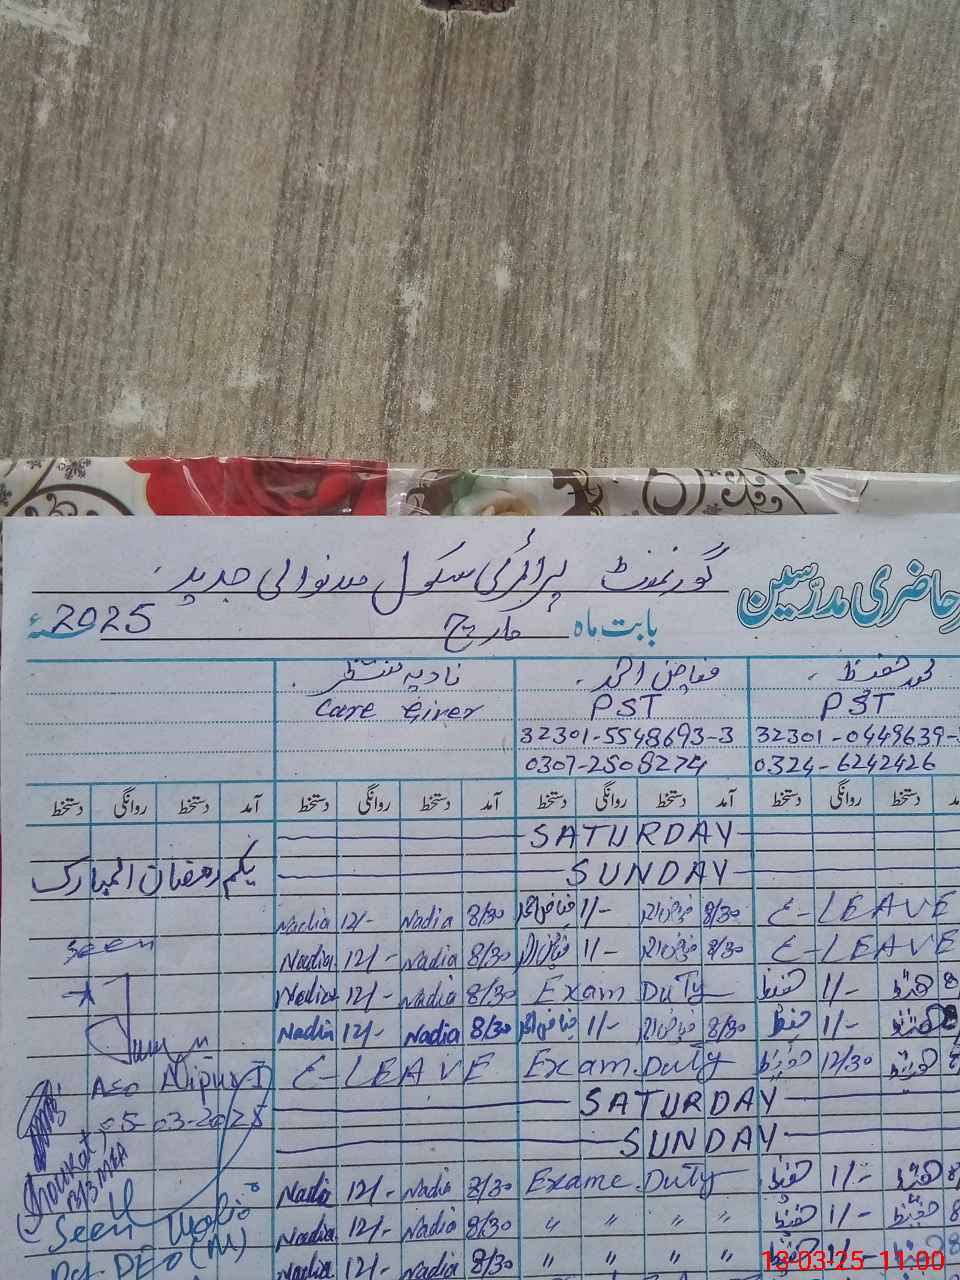 حاضری مدرسین
گورنمنٹ پرائمری سکول جدید
بابت ماہ مارچ 2025
محمد حفیظ فیاض احمد نادیہ منتظر
PST PST Care Giver
32301-0449639- 32301-5548693-3
0324-6242426 0307-2508274
دستخط روانگی دستخط آمد دستخط روانگی دستخط آمد دستخط روانگی دستخط آمد
SATURDAY
SUNDAY
یکم رمضان المبارک
Nadia 12/- Nadia 8/30 1/- 8/30 E-LEAVE
seen
Nadia 12/- Nadia 8/30 1/- 8/30 E-LEAVE
Nadia 12/- Nadia 8/30 Exam Duty حفیظ 1/- حفیظ 8
Nadia 12/- Nadia 8/30 1/- 8/30 حفیظ 1/- حفیظ
AEO Nipur-I E-LEAVE Exam Duty حفیظ 12/30 حفیظ 8
05-03-2025 SATURDAY
SUNDAY
Shoukat
13/3 MEA
Nadia 12/- Nadia 8/30 Exame Duty حفیظ 1/- حفیظ 8
Seen
Nadia 12/- Nadia 8/30 " " " " حفیظ 1/- حفیظ 8
DEO (M)
Nadia 12/- Nadia 8/30 " " " "
18-03-25 11:00